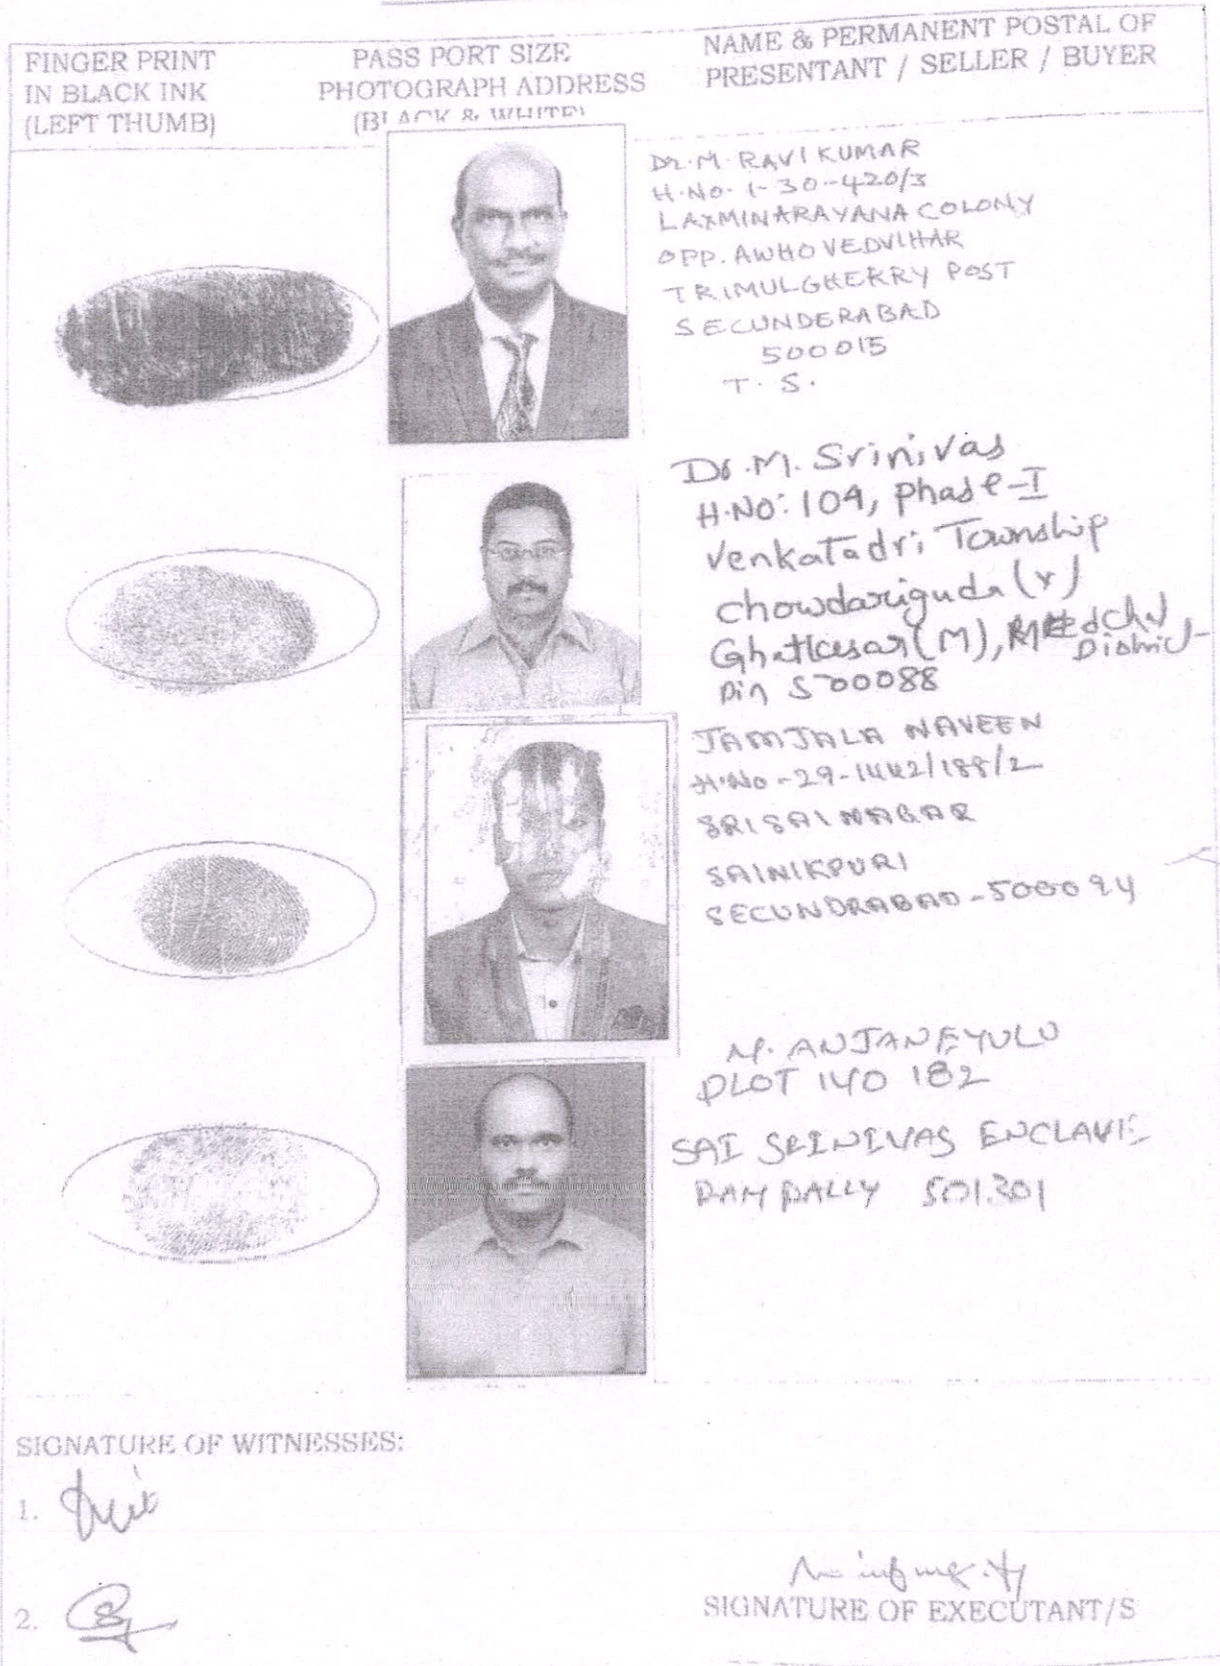 FINGER PRINT
IN BLACK INK
(LEFT THUMB)
PASS PORT SIZE
PHOTOGRAPH ADDRESS
(BLACK & WHITE)
NAME & PERMANENT POSTAL OF
PRESENTANT / SELLER / BUYER
Dr. M. RAVI KUMAR
H.No. 1-30-420/3
LAXMINARAYANA COLONY
OPP. AWHO VEDVIHAR
TRIMULGHERRY POST
SECUNDERABAD
500015
T. S.
Dr. M. Srinivas
H.No: 104, Phase-I
Venkatadri Township
Chowdariguda (v)
Ghatkesar (M), Medchal
District
Pin 500088
JAMJALA NAVEEN
H.No-29-1442/188/2
SRISAI NAGAR
SAINIKPURI
SECUNDRABAD-500094
M. ANJANEYULU
PLOT NO 182
SAI SRINIVAS ENCLAVE
RAMPALLY 501301
SIGNATURE OF WITNESSES:
1.
2.
SIGNATURE OF EXECUTANT/S